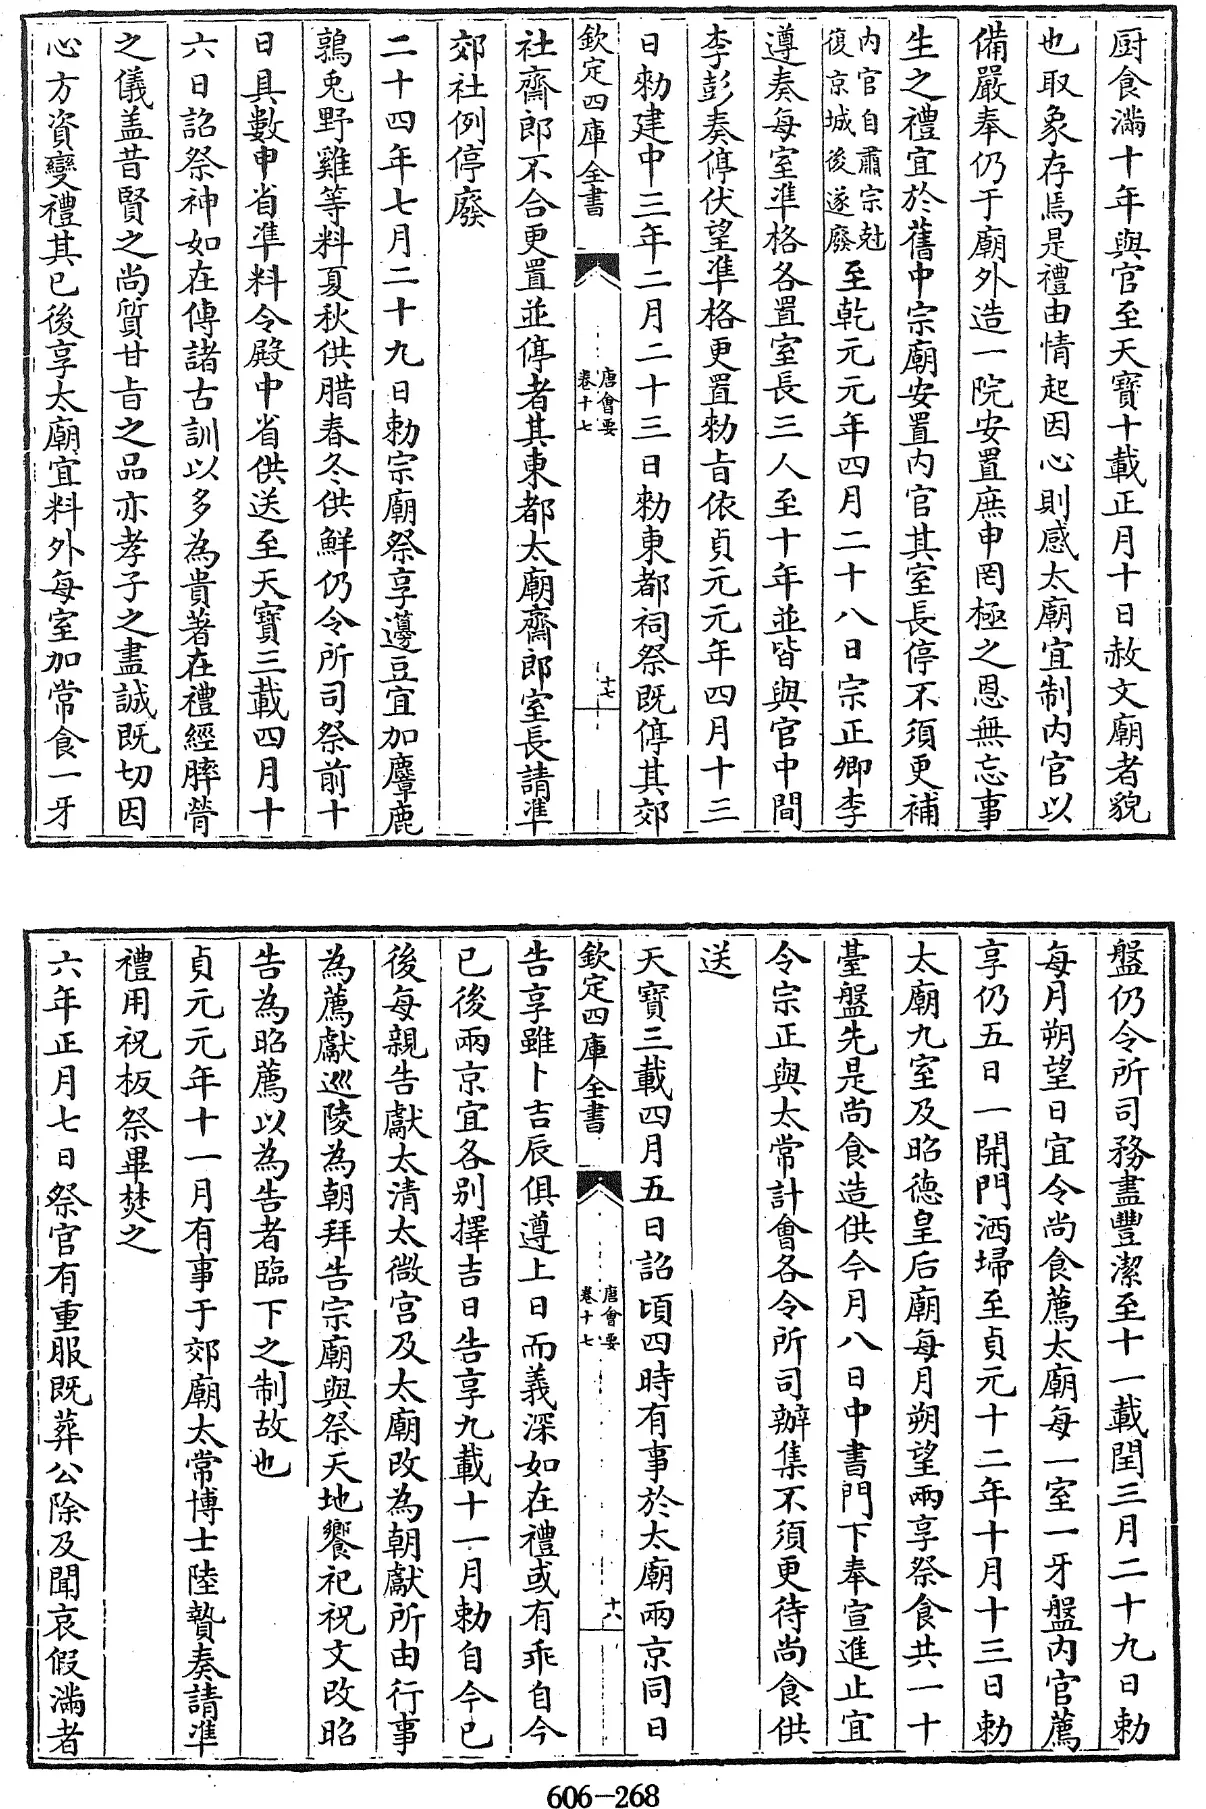 厨食滿十年與官至天寶十載正月十日赦文廟者貌
也取象存焉是禮由情起因心則感太廟宜制内官以
備嚴奉仍于廟外造一院安置庶申罔極之恩無忘事
生之禮宜於舊中宗廟安置内官其室長停不須更補
内官自肅宗尅
復京城後遂廢
至乾元元年四月二十八日宗正卿李
遵奏每室準格各置室長三人至十年並皆與官中間
李彭奏停伏望準格更置勅旨依貞元元年四月十三
日勅建中三年二月二十三日勅東都祠祭既停其郊
欽定四庫全書
唐會要
卷十七
十七
社齋郎不合更置並停者其東都太廟齋郎室長請準
郊社例停廢
二十四年七月二十九日勅宗廟祭享籩豆宜加麞鹿
鶉兎野雞等料夏秋供腊春冬供鮮仍令所司祭前十
日具數申省準料令殿中省供送至天寶三載四月十
六日詔祭神如在傳諸古訓以多為貴著在禮經膟膋
之儀盖昔賢之尚質甘旨之品亦孝子之盡誠既切因
心方資變禮其已後享太廟宜料外每室加常食一牙
盤仍令所司務盡豐潔至十一載閏三月二十九日勅
每月朔望日宜令尚食薦太廟每一室一牙盤内官薦
享仍五日一開門洒埽至貞元十二年十月十三日勅
太廟九室及昭德皇后廟每月朔望兩享祭食共一十
臺盤先是尚食造供今月八日中書門下奉宣進止宜
令宗正與太常計會各令所司辦集不須更待尚食供
送
天寶三載四月五日詔頃四時有事於太廟兩京同日
欽定四庫全書
唐會要
卷十七
十八
告享雖卜吉辰俱遵上日而義深如在禮或有乖自今
已後兩京宜各别擇吉日告享九載十一月勅自今已
後每親告獻太清太微宫及太廟改為朝獻所由行事
為薦獻巡陵為朝拜告宗廟與祭天地饗祀祝文改昭
告為昭薦以為告者臨下之制故也
貞元元年十一月有事于郊廟太常博士陸贄奏請準
禮用祝板祭畢焚之
六年正月七日祭官有重服既葬公除及聞哀假滿者
606-268